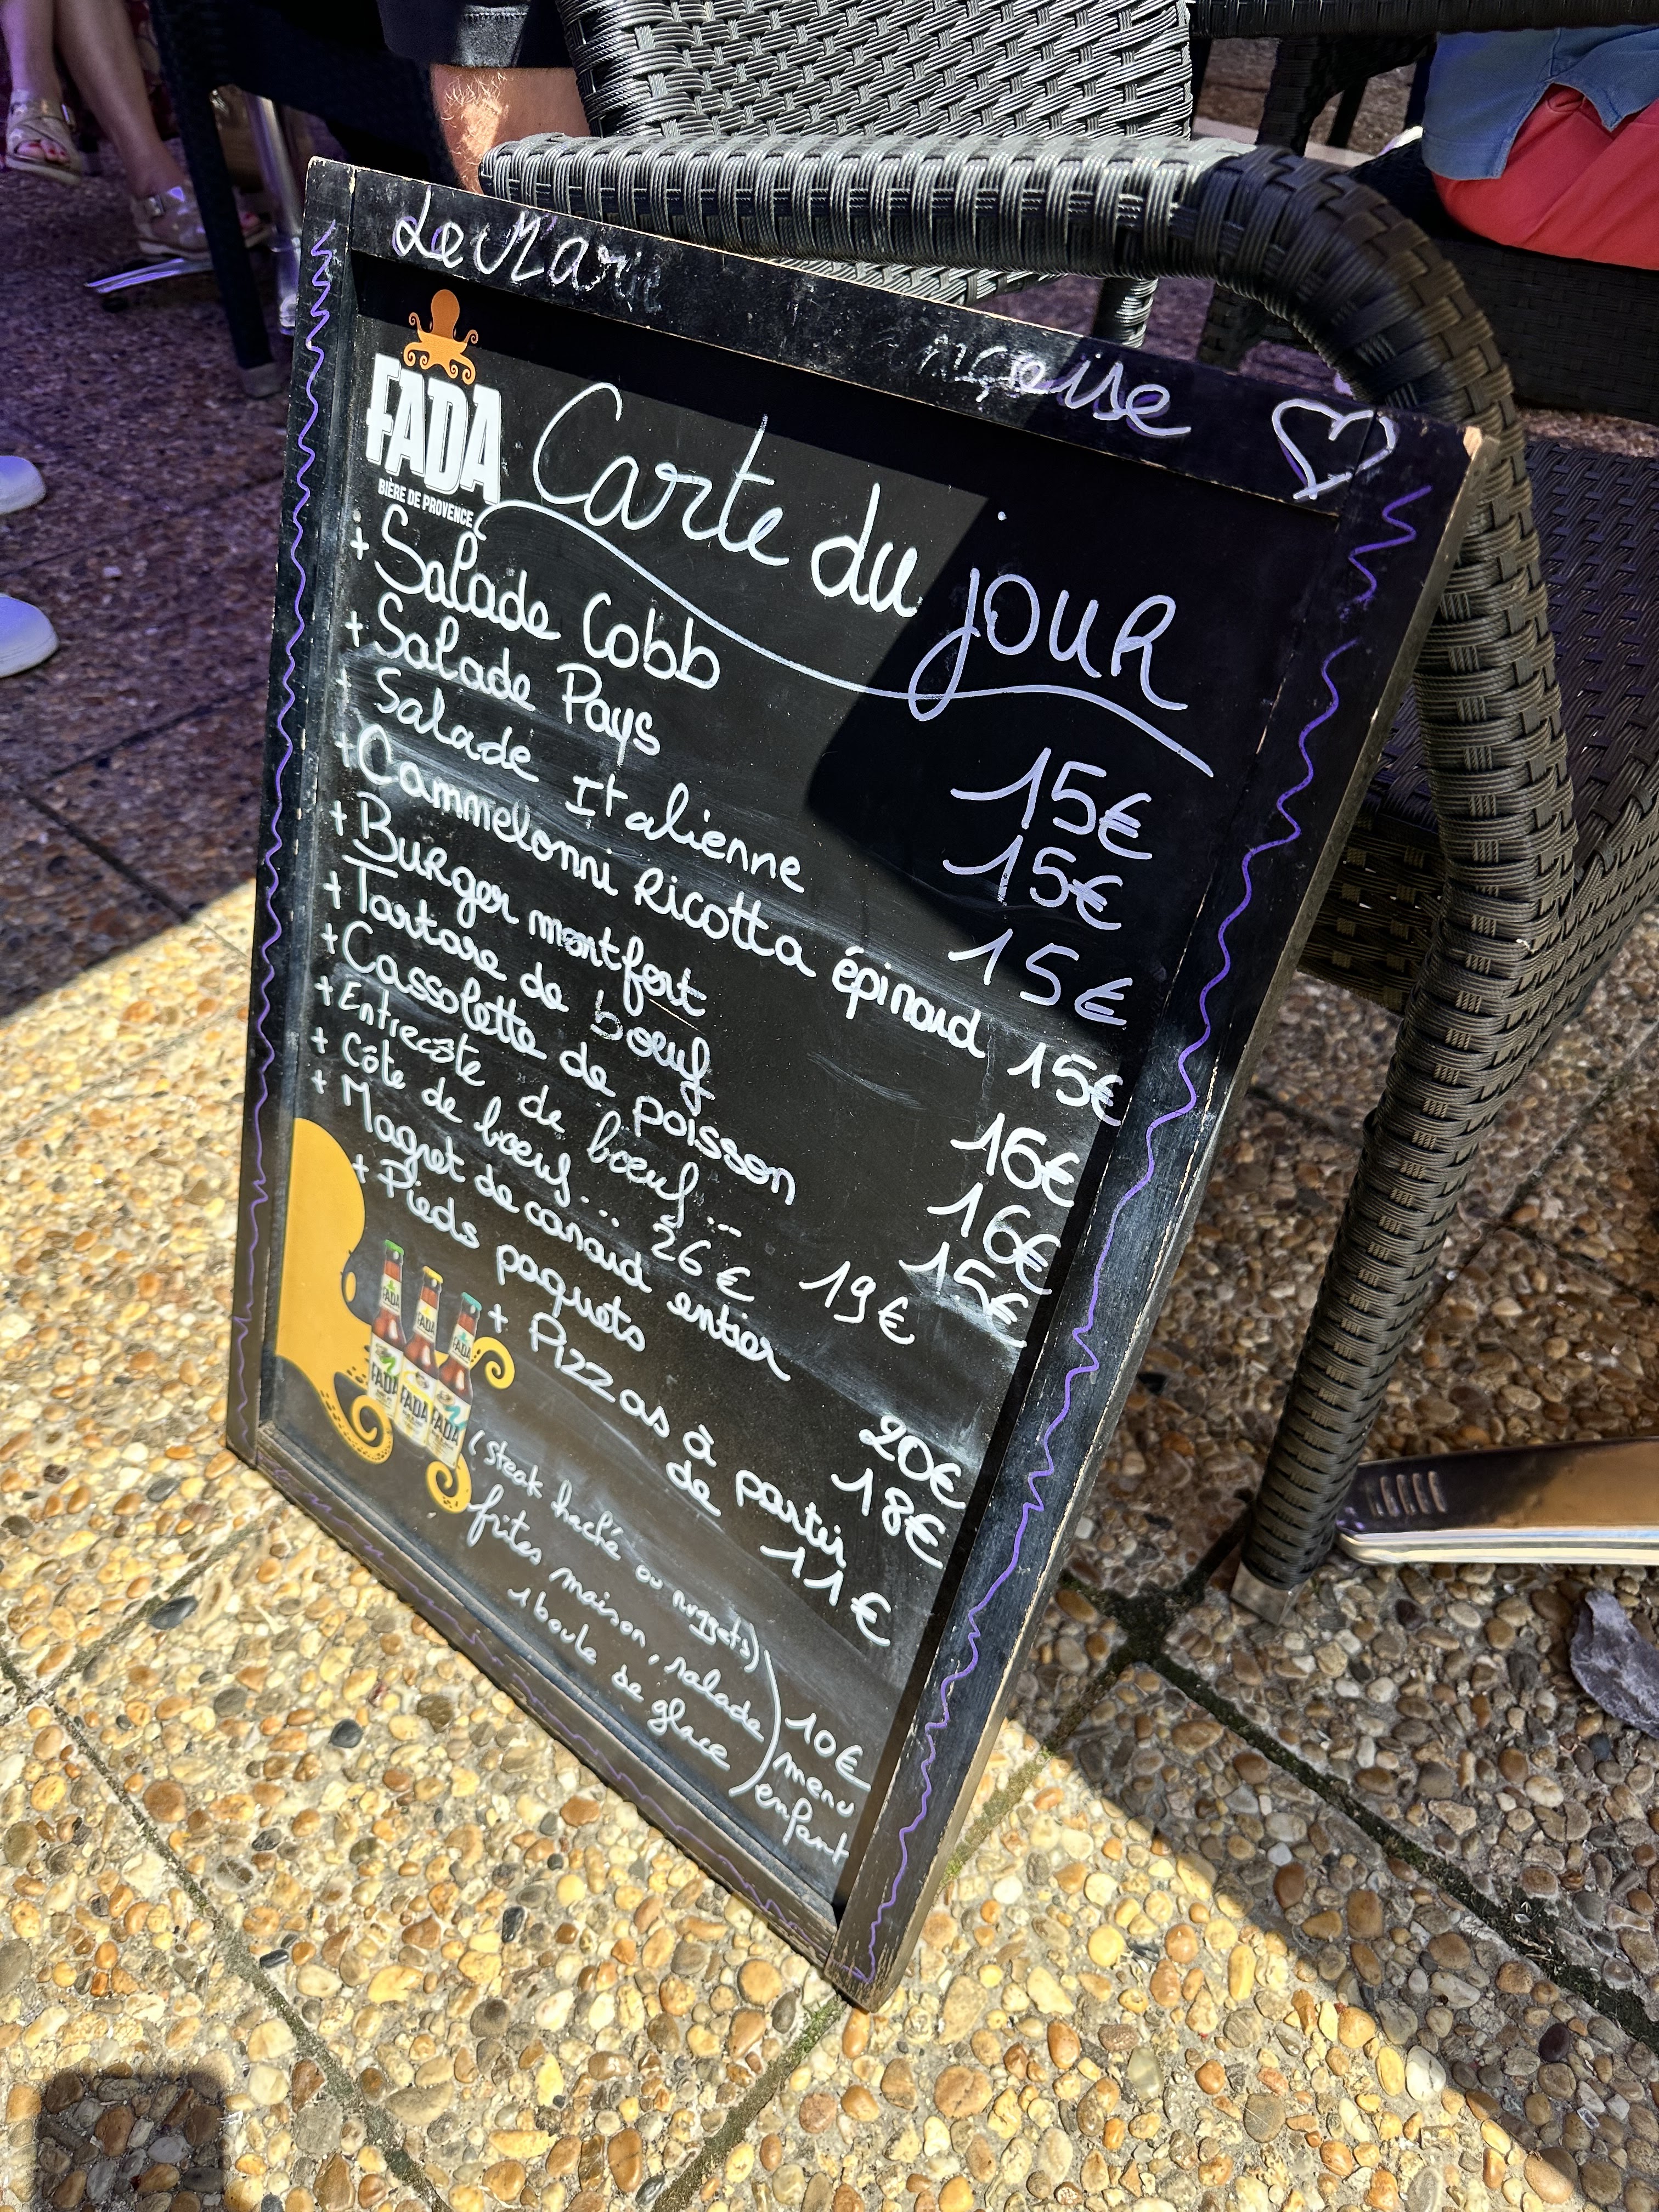 Le Marie
nçaise
FADA
BIÈRE DE PROVENCE
Carte du jour
+ Salade Cobb 15€
+ Salade Pays 15€
+ Salade Italienne 15€
+ Cammelonni Ricotta épinard 15€
+ Burger montfort 16€
+ Tartare de bœuf 16€
+ Cassolette de poisson 15€
+ Entrecôte de bœuf... 19€
+ Côte de bœuf... 26€
+ Magret de canard entier 20€
+ Pieds paquets 18€
+ Pizzas à partir
de 11€
(steak haché ou nuggets)
frites maison, salade
1 boule de glace
10€
menu
enfant
FADA
FADA
FADA
FADA
FADA
FADA